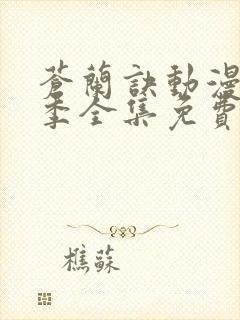 蒼蘭訣動漫
季全集免費
樵蘇